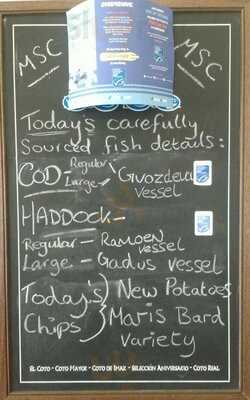 MSC
MSC
Today's carefully
Sourced fish details:
COD Regular
Large Gvozdeva
Vessel
HADDOCK -
Regular - Ramoen
Vessel
Large - Gadus vessel
Today's New Potatoes
Chips Maris Bard
Variety
EL COTO - COTO MAYOR - COTO DE IMAZ - SELECCIÓN ANIVERSARIO - COTO REAL